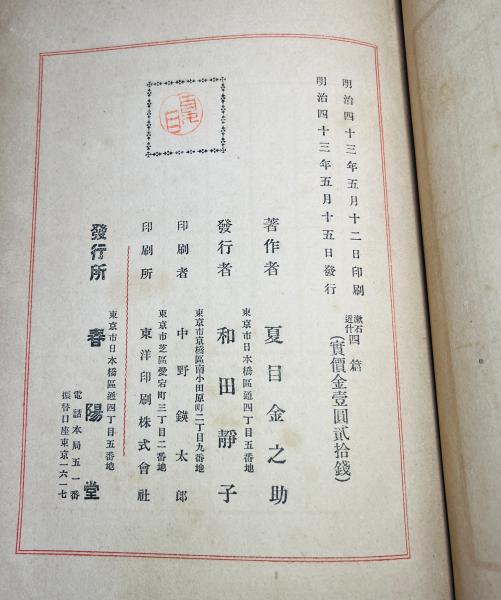 明治四十三年五月十二日印刷
明治四十三年五月十五日發行
漱石近什四篇
(實價金壹圓貳拾錢)
著作者 夏目金之助
東京市日本橋區通四丁目五番地
發行者 和田靜子
東京市京橋區南小田原町二丁目九番地
印刷者 中野鍈太郎
東京市芝區愛宕町三丁目二番地
印刷所 東洋印刷株式會社
東京市日本橋區通四丁目五番地
發行所 春陽堂
電話本局五一番
振替口座東京一六一七
夏目